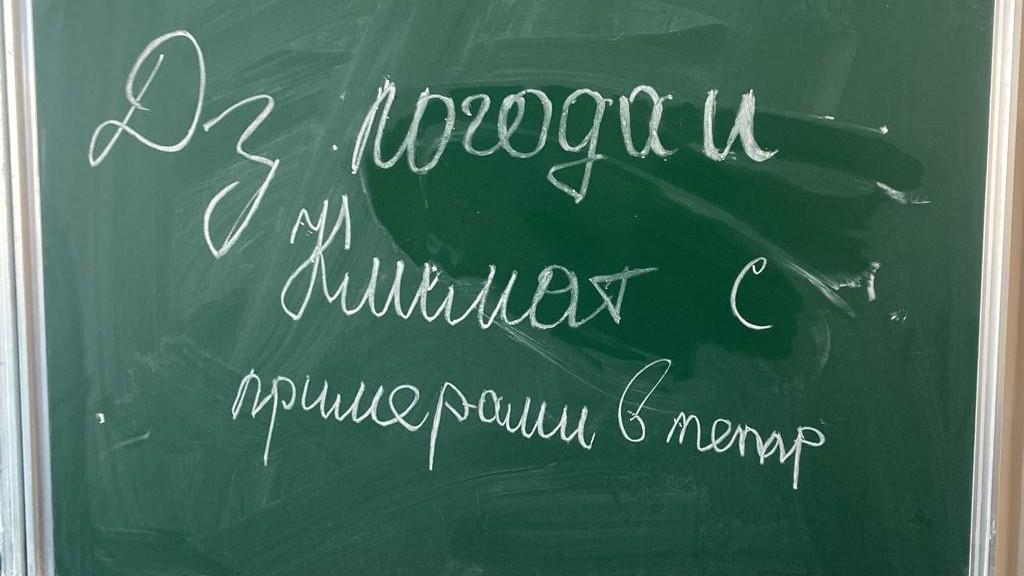 Дз погода и
климат с
примерами в тетр